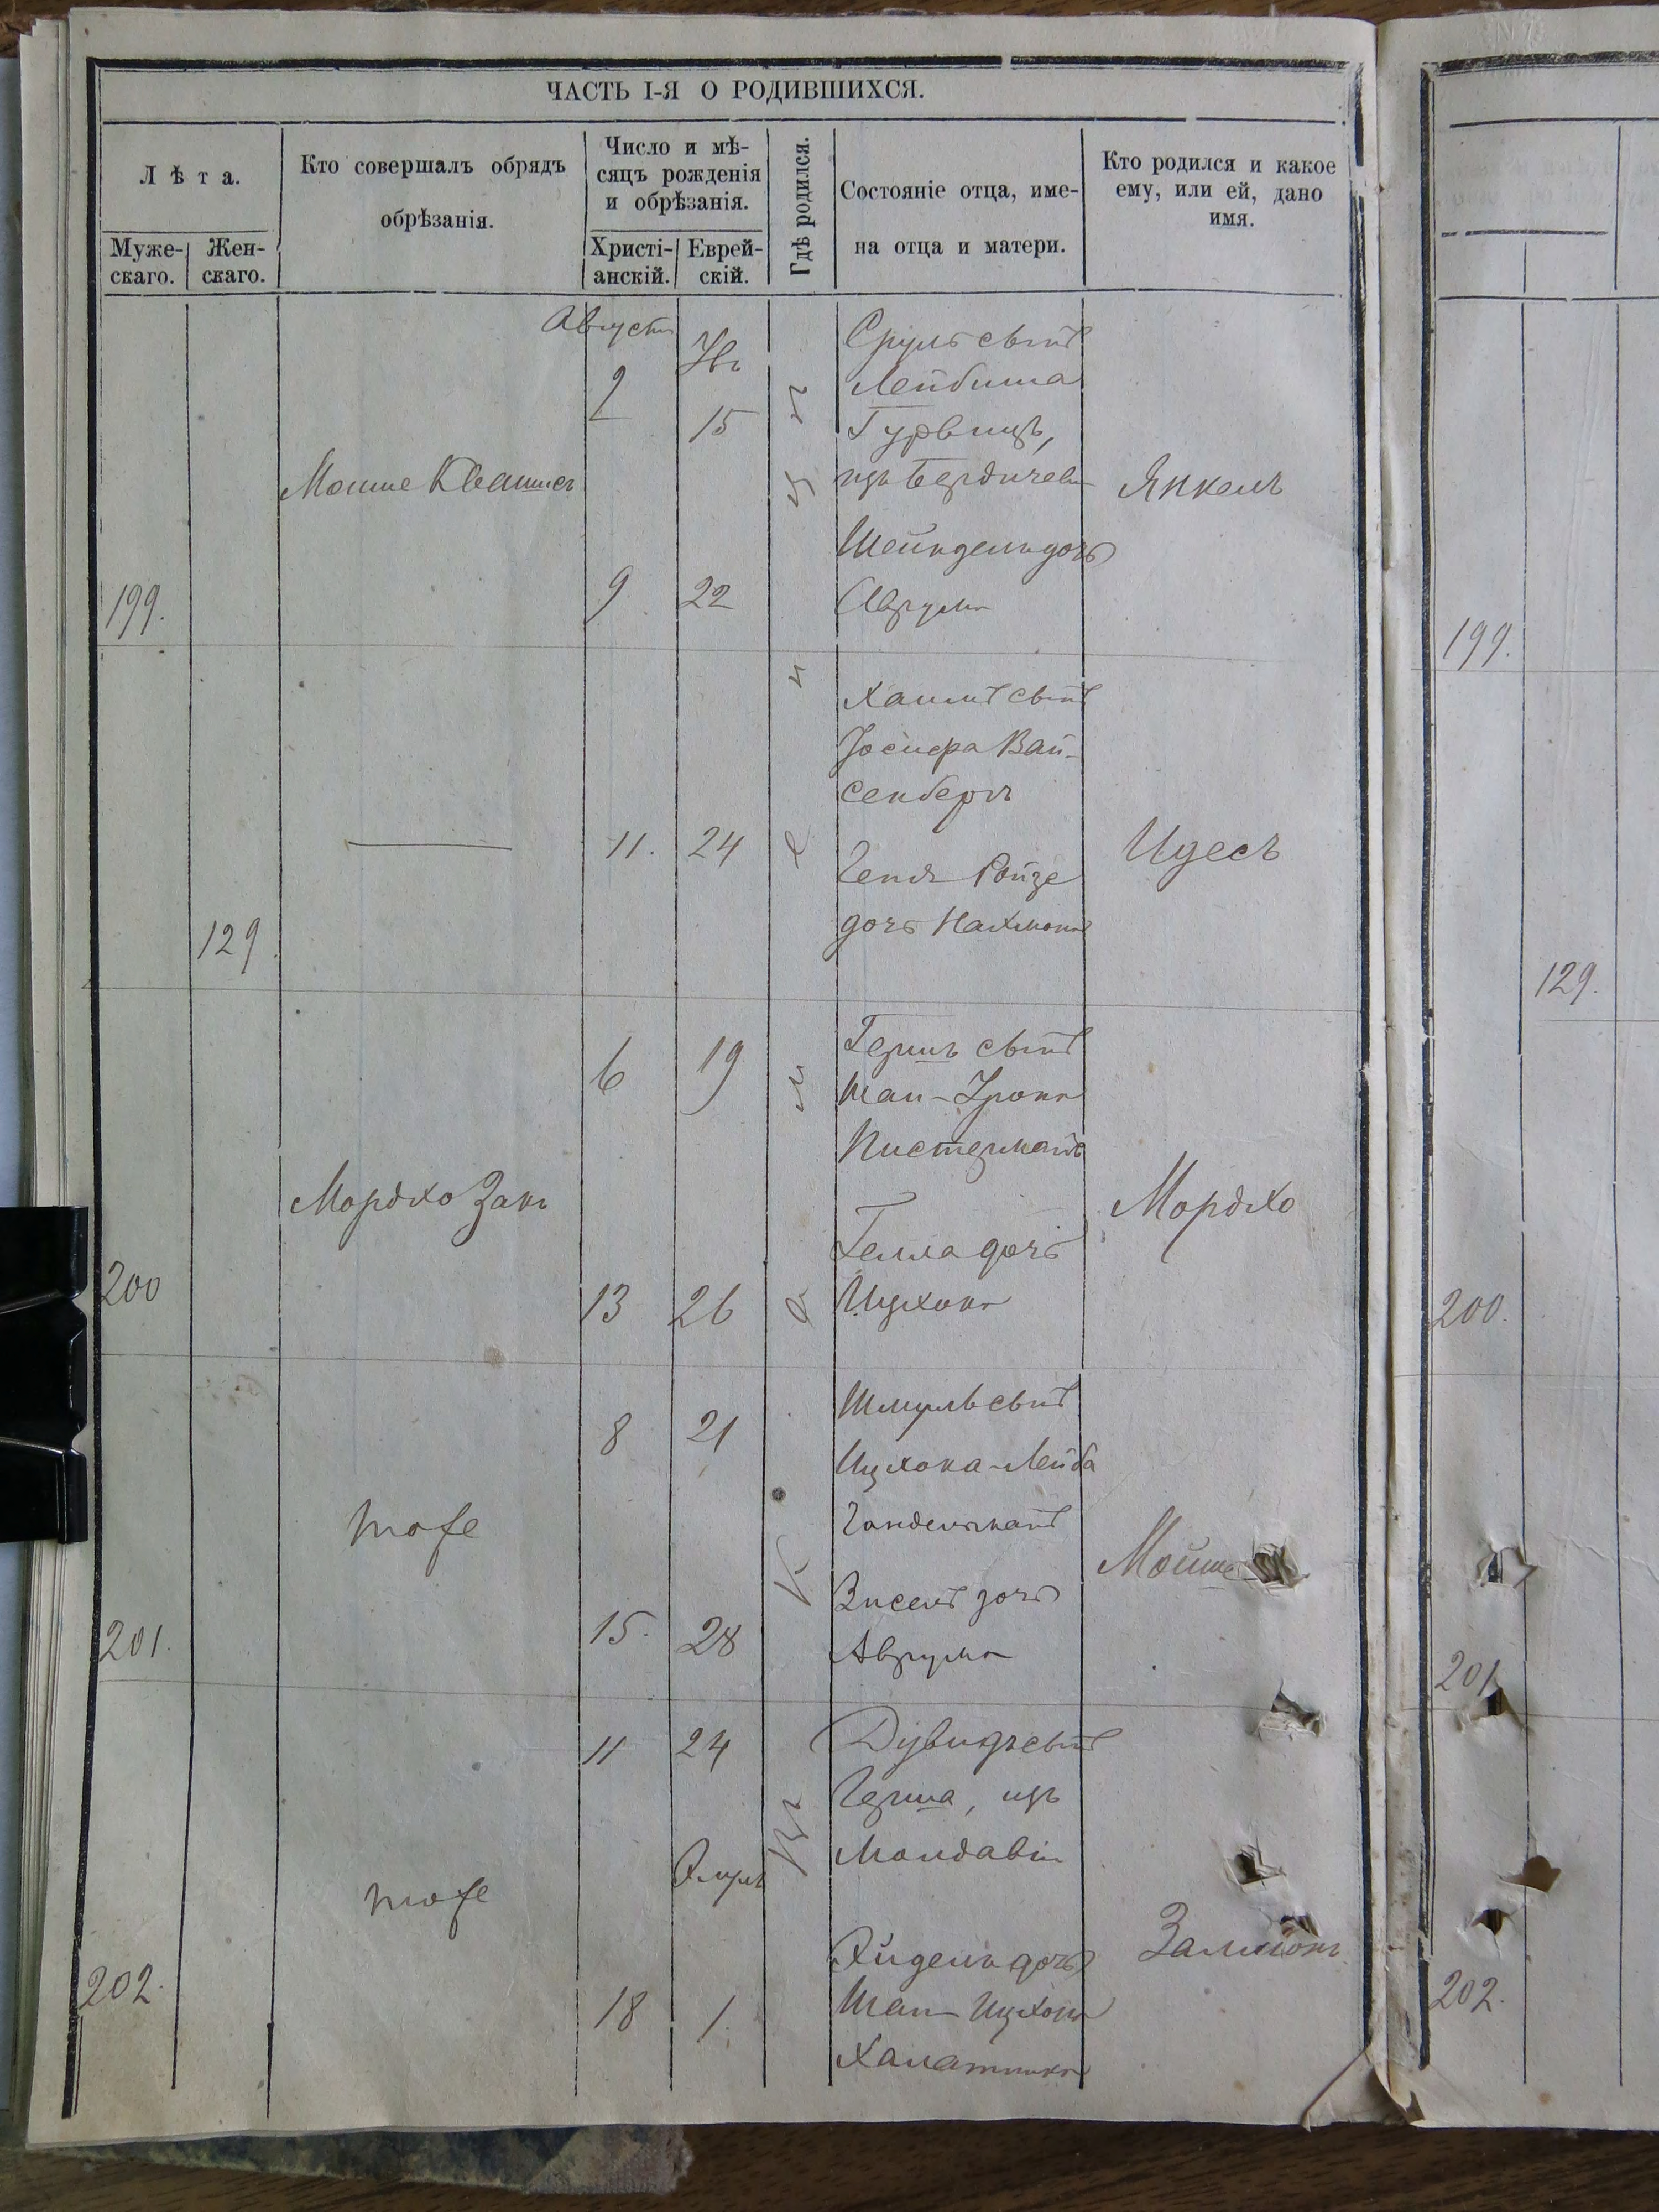 ЧАСТЬ I-Я О РОДИВШИХСЯ.
Лѣта.
Муже-
скаго.
Жен-
скаго.
Кто совершалъ обрядъ
обрѣзанія.
Число и мѣ-
сяцъ рожденія
и обрѣзанія.
Христі-
анскій.
Еврей-
скій.
Гдѣ родился.
Состояніе отца, име-
на отца и матери.
Кто родился и какое
ему, или ей, дано
имя.
199.
Августъ
2
9
15
22
Сруль сынъ
Лейбиша
Гурвицъ,
изъ Бердичева
Шейндель дочь
Аврума
Янкель
129
11.
24
Хаимъ сынъ
Іосифа Вай-
сенбергъ
Геня Ройзе
дочь Нахмана
Идесъ
200
Мордхо Закъ
6
13
19
26
Гершъ сынъ
Пистерманъ
дочь
Ицхока
Мордхо
201.
тоже
8
15.
21
28
Шмуль сынъ
Ицхока-Лейба
Гандельманъ
дочь
Аврума
Мойше
202.
тоже
11
18
24
Элулъ
1.
Дувидъ сынъ
Герша, изъ
Молдавіи
Эйдель дочь
Ицхока
Залмонъ
199.
129.
200.
201
202.